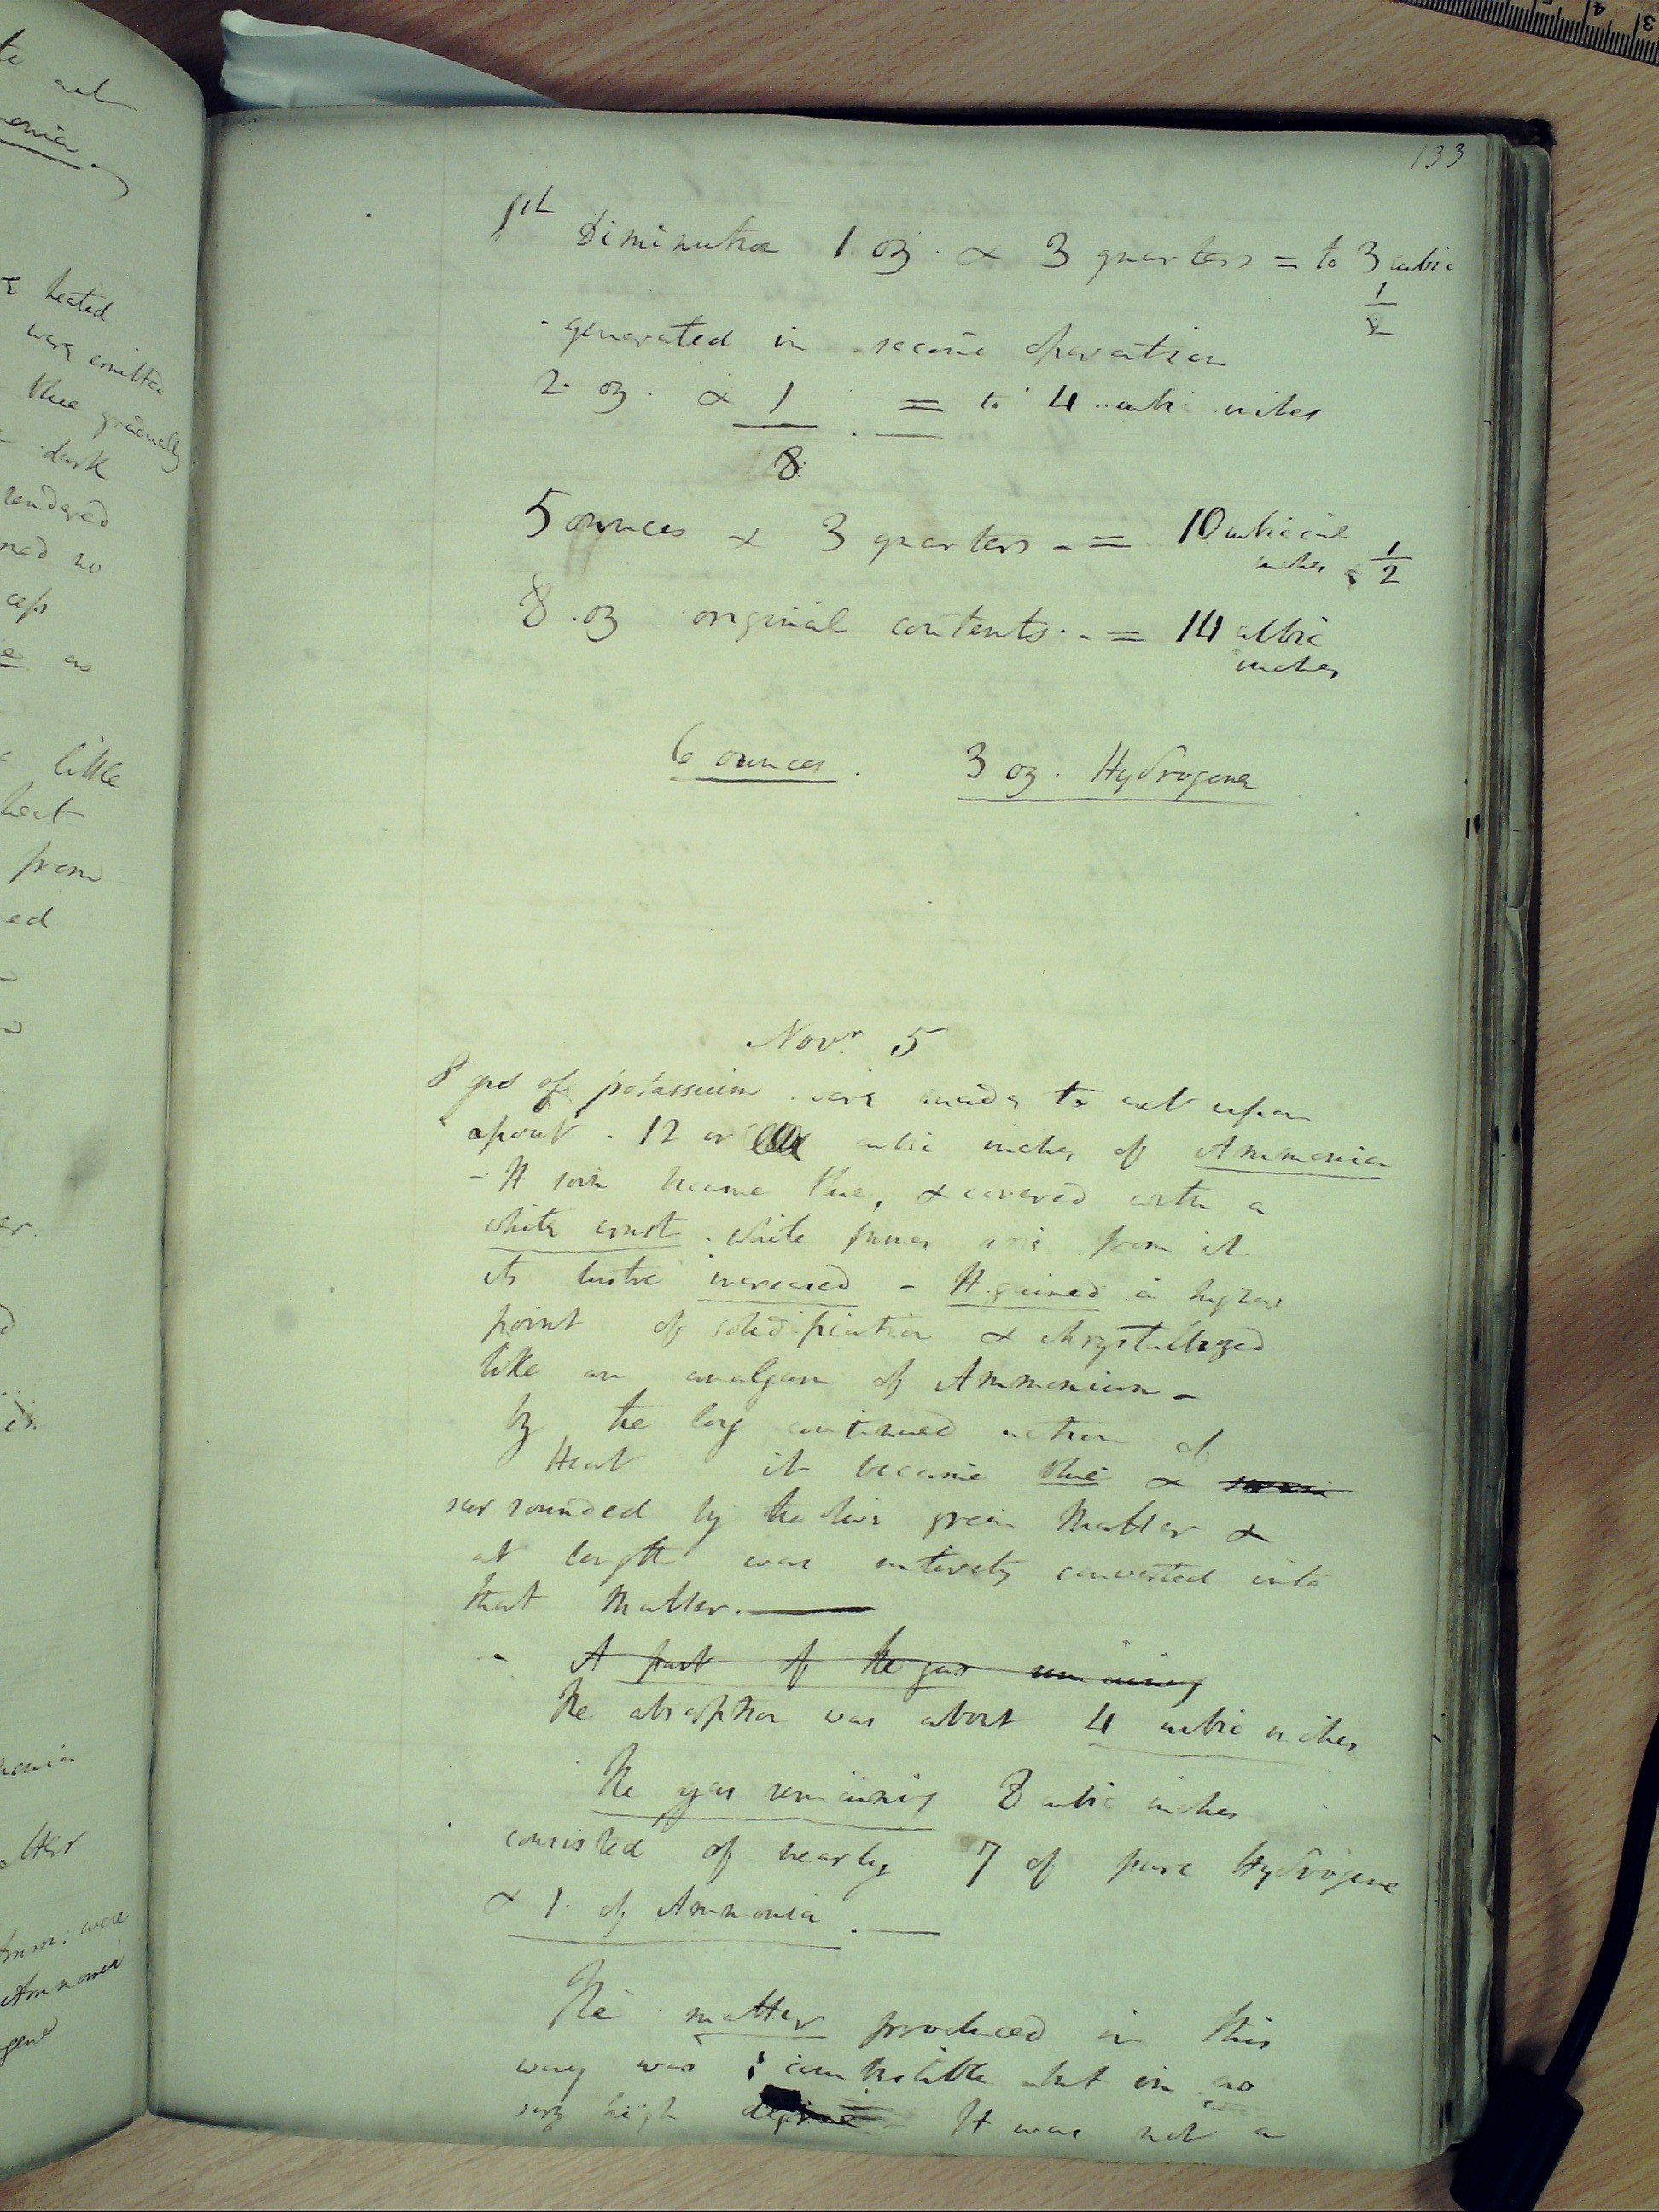 to act
heated
were emitted
blue gradually
dark
rendered
no
as
little
heat
from
ed
were
133
1st Diminution 1 oz. & 3 quarters = to 3 cubic
1/2
- generated in second operation
2 oz. & 1/8 = to 4 cubic inches
5 ounces & 3 quarters - = 10 cubical
inches & 1/2
8 oz original contents. - = 14 cubic
inches
6 ounces. 3 oz. Hydrogene
Novr. 5
8 grs of potassium were made to act upon
about 12 or cubic inches of Ammonia
- It soon became blue, & covered with a
white crust. White fumes from it
its lustre increased - It gained a higher
point of solidification & chrystallized
like an amalgam of Ammonium -
by the long continued action of
Heat it became blue &
surrounded by the olive green Matter &
at length was entirely converted into
that Matter. —
- A part of the gas remaining
The absorption was about 4 cubic inches
The gas remaining 8 cubic inches
consisted of nearly 7 of pure Hydrogene
& 1. of Ammonia. —
The matter produced in this
way was combustible but in no
very high degree It was not a